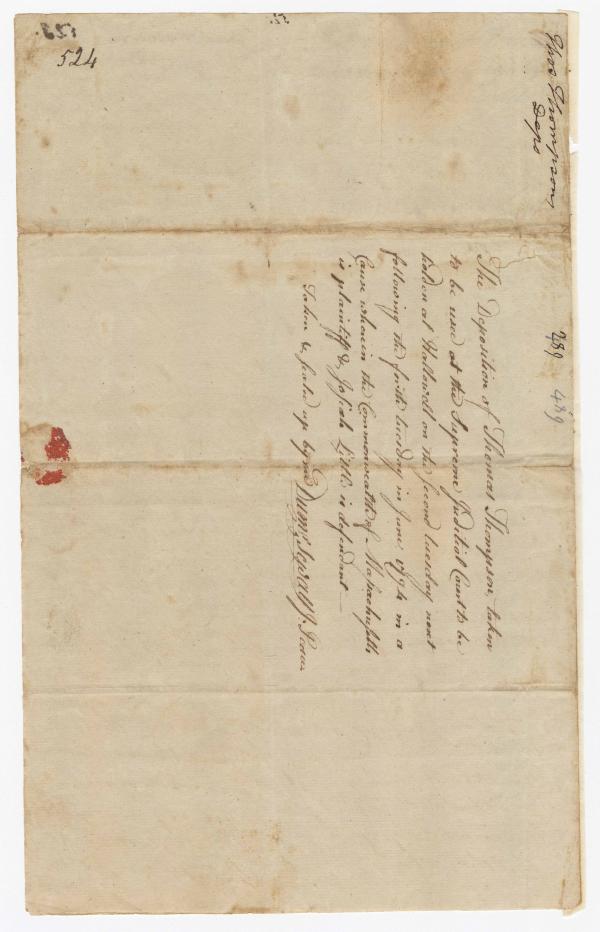 523.
524
Thos Thompson,
Deps
289 489
The Deposition of Thomas Thompson, taken
to be used at the Supreme Juditial Court to be
holden at Hallowell on the second tuesday next
following the first tuesday in June 1794 in a
Cause wherein the Commonwealth of Massachusetts
is plaintiff & Josiah Little is defendant —
Taken & sealed up by me Dumr Sewall J. Peace